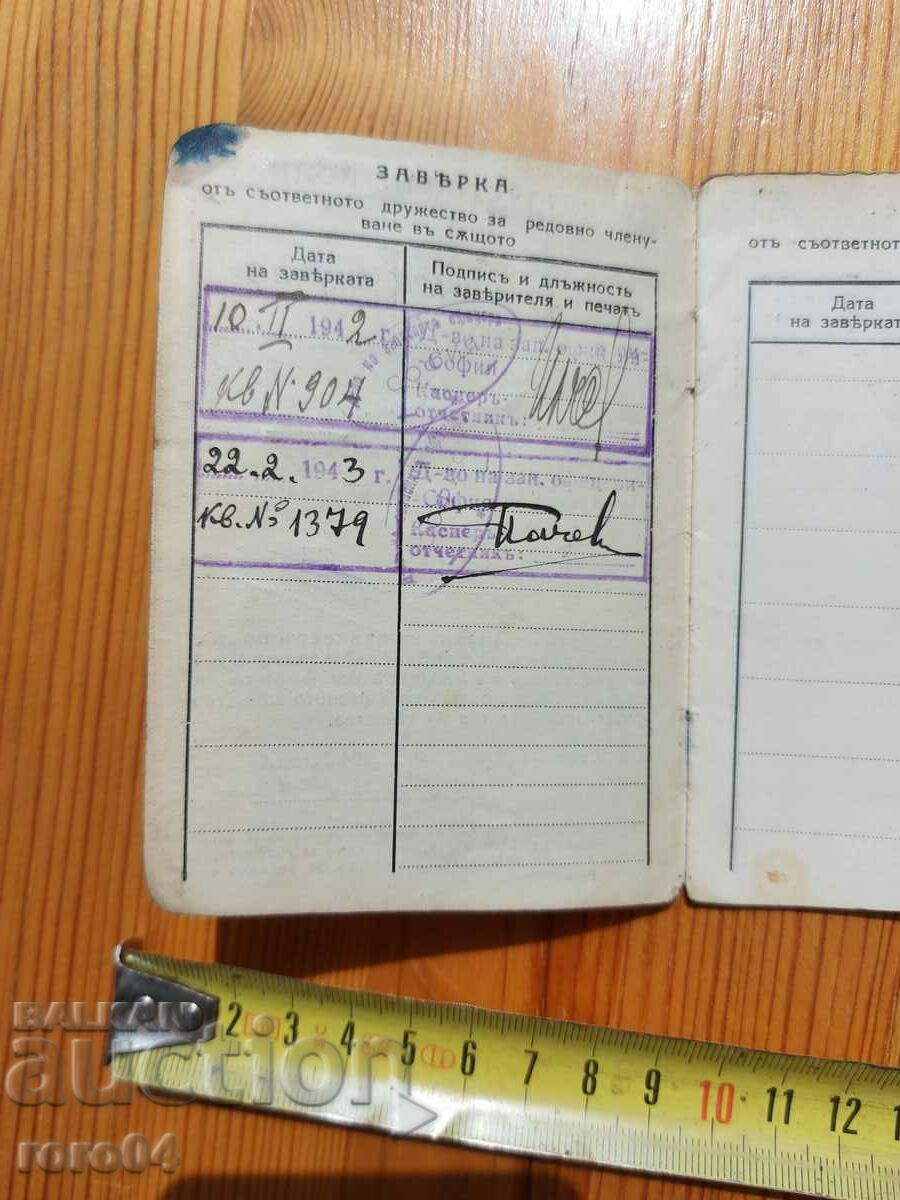 ЗАВѢРКА
отъ съответното дружество за редовно члену-
ване въ сѫщото
Дата
на завѣрката
Подписъ и длъжность
на завѣрителя и печать
10 II 1942 г.
кв № 904
Д-во на зап. офиц.
София
Касиеръ-
отчетникъ:
22.2. 1943 г.
кв. № 1379
Д-во на зап. офиц.
София
Касиеръ
отчетникъ:
отъ съответнот
Дата
на завѣркат
2 3 4 5 6 7 8 9 10 11 12 1
BALKAN
auction
roro04